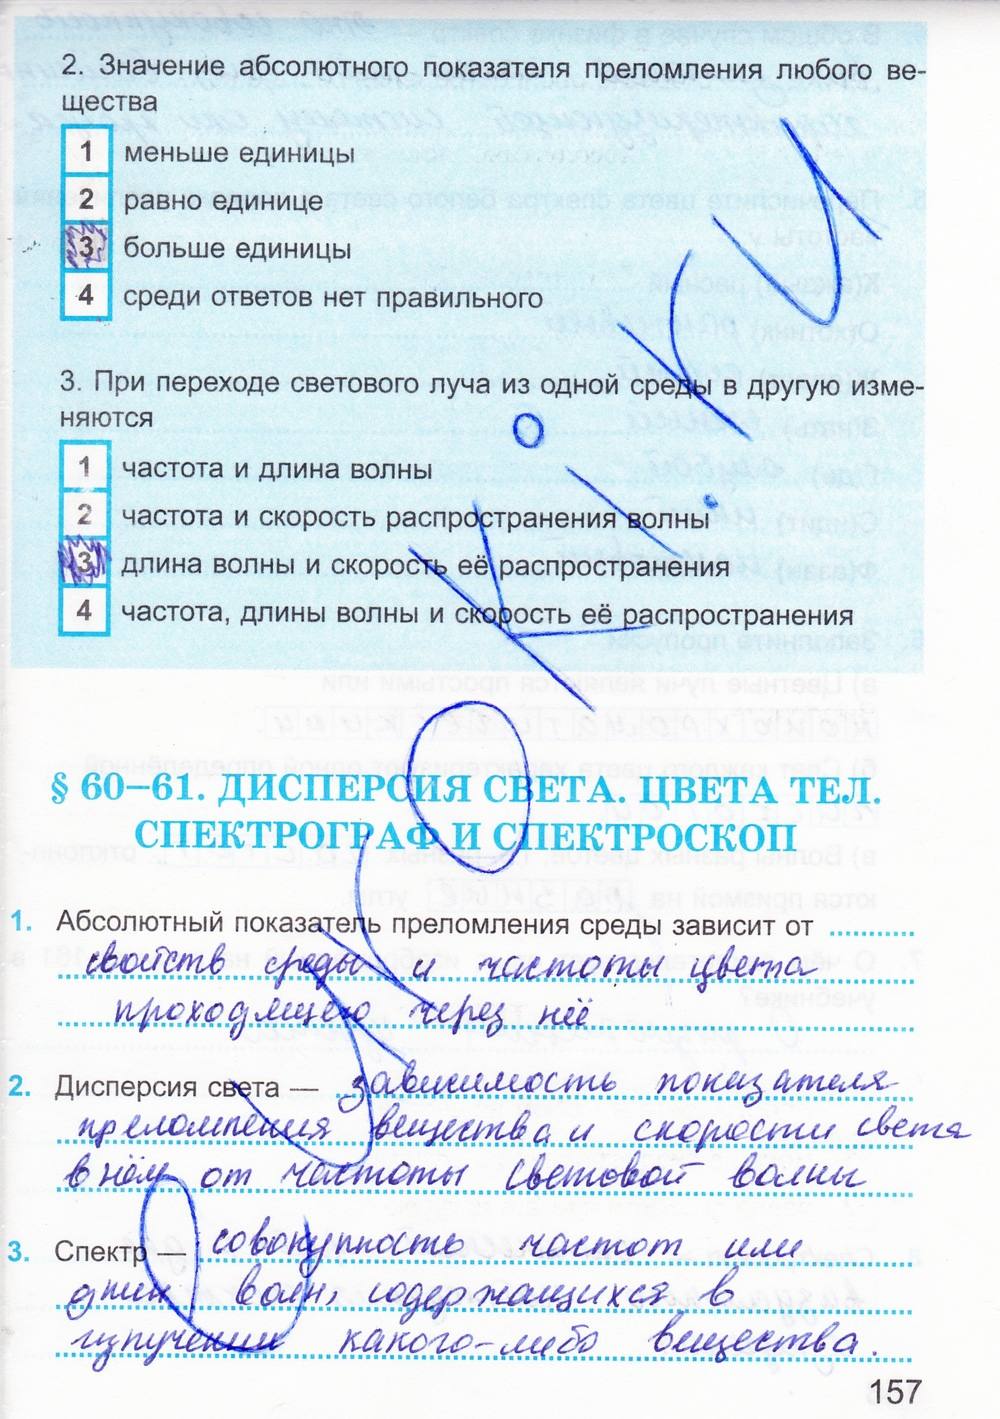 2. Значение абсолютного показателя преломления любого ве-
щества
1 меньше единицы
2 равно единице
3 больше единицы
4 среди ответов нет правильного
3. При переходе светового луча из одной среды в другую изме-
няются
1 частота и длина волны
2 частота и скорость распространения волны
3 длина волны и скорость её распространения
4 частота, длины волны и скорость её распространения
§ 60–61. ДИСПЕРСИЯ СВЕТА. ЦВЕТА ТЕЛ.
СПЕКТРОГРАФ И СПЕКТРОСКОП
1. Абсолютный показатель преломления среды зависит от
свойств среды и частоты цвета
проходящего через неё
2. Дисперсия света — зависимость показателя
преломления вещества и скорости света
в нём от частоты световой волны
3. Спектр — совокупность частот или
длин волн, содержащихся в
излучении какого-либо вещества.
157